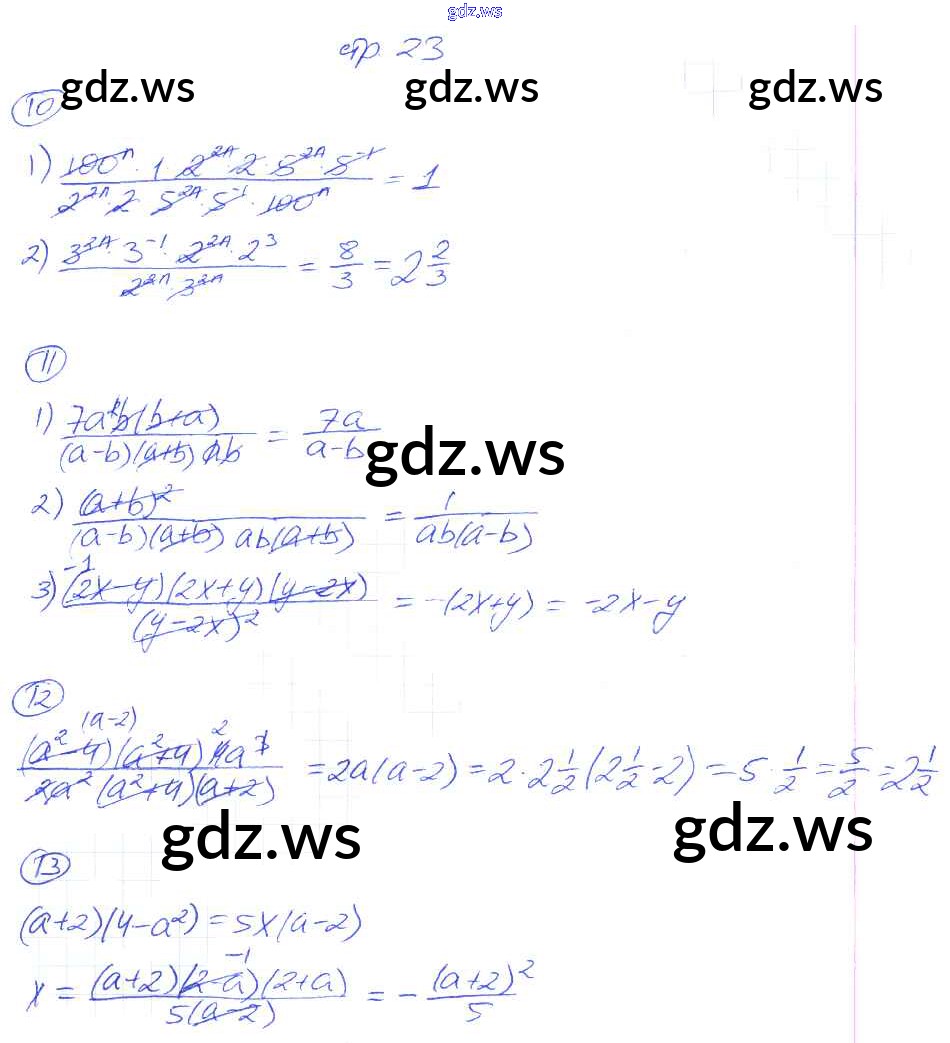 gdz.ws
стр. 23
gdz.ws gdz.ws gdz.ws
10
1) 100ⁿ · 1 · 2²ⁿ · 2 · 5²ⁿ · 5⁻¹ / 2²ⁿ · 2 · 5²ⁿ · 5⁻¹ · 100ⁿ = 1
2) 3²ⁿ · 3⁻¹ · 2²ⁿ · 2³ / 2²ⁿ · 3²ⁿ = 8/3 = 2 2/3
11
1) 7a²b(b+a) / (a-b)(a+b) ab = 7a / a-b
gdz.ws
2) (a+b)² / (a-b)(a+b) ab(a+b) = 1 / ab(a-b)
-1
3) (2x-y)(2x+y)(y-2x) / (y-2x)² = -(2x+y) = -2x-y
12
(a-2) 2
(a²-4)(a²+4) 4a³ / 2a²(a²+4)(a+2) = 2a(a-2) = 2 · 2 1/2 (2 1/2 - 2) = 5 · 1/2 = 5/2 = 2 1/2
gdz.ws gdz.ws
13
(a+2)(4-a²) = 5x(a-2)
-1
x = (a+2)(2-a)(2+a) / 5(a-2) = - (a+2)² / 5